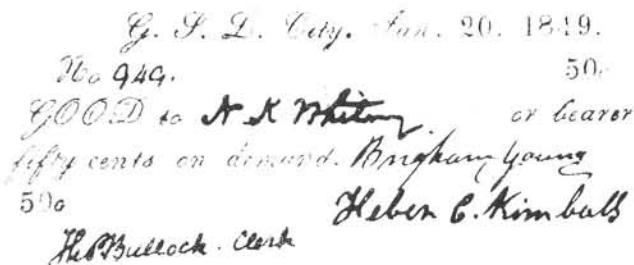 G. S. L. City. Jan. 20. 1849.
No 949. 50c
GOOD to N K Whitney or bearer
fifty cents on demand. Brigham Young
50c Heber C. Kimball
Tho Bullock. Clerk